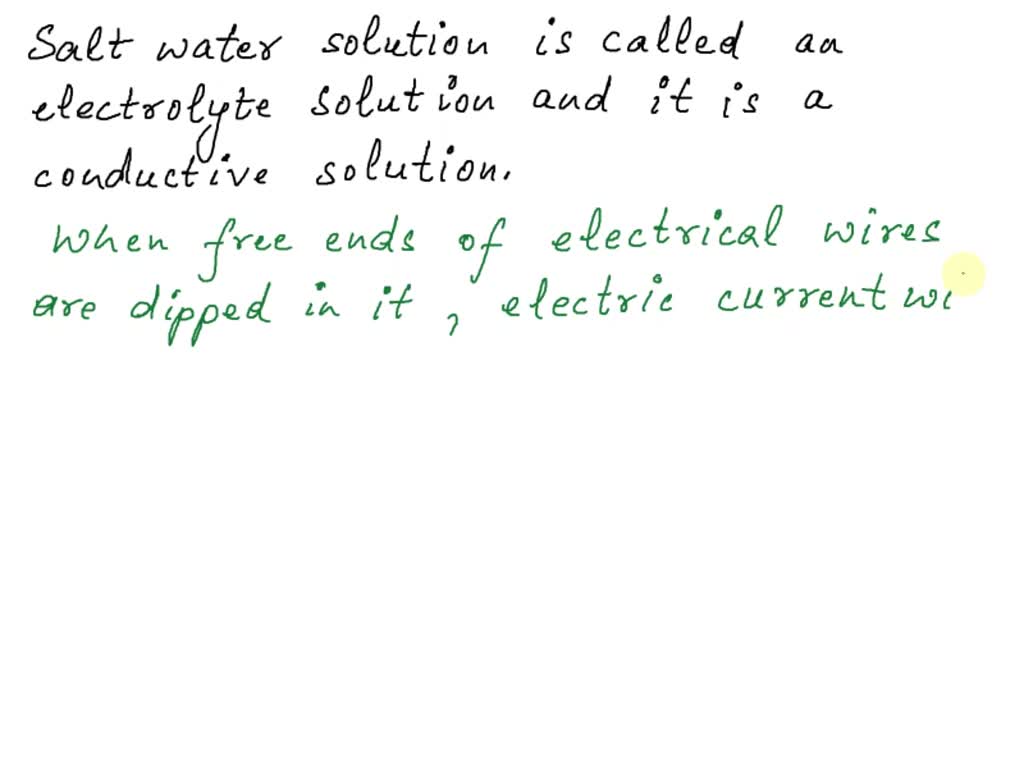 Salt water solution is called an
electrolyte solution and it is a
conductive solution.
When free ends of electrical wires
are dipped in it, electric current wi